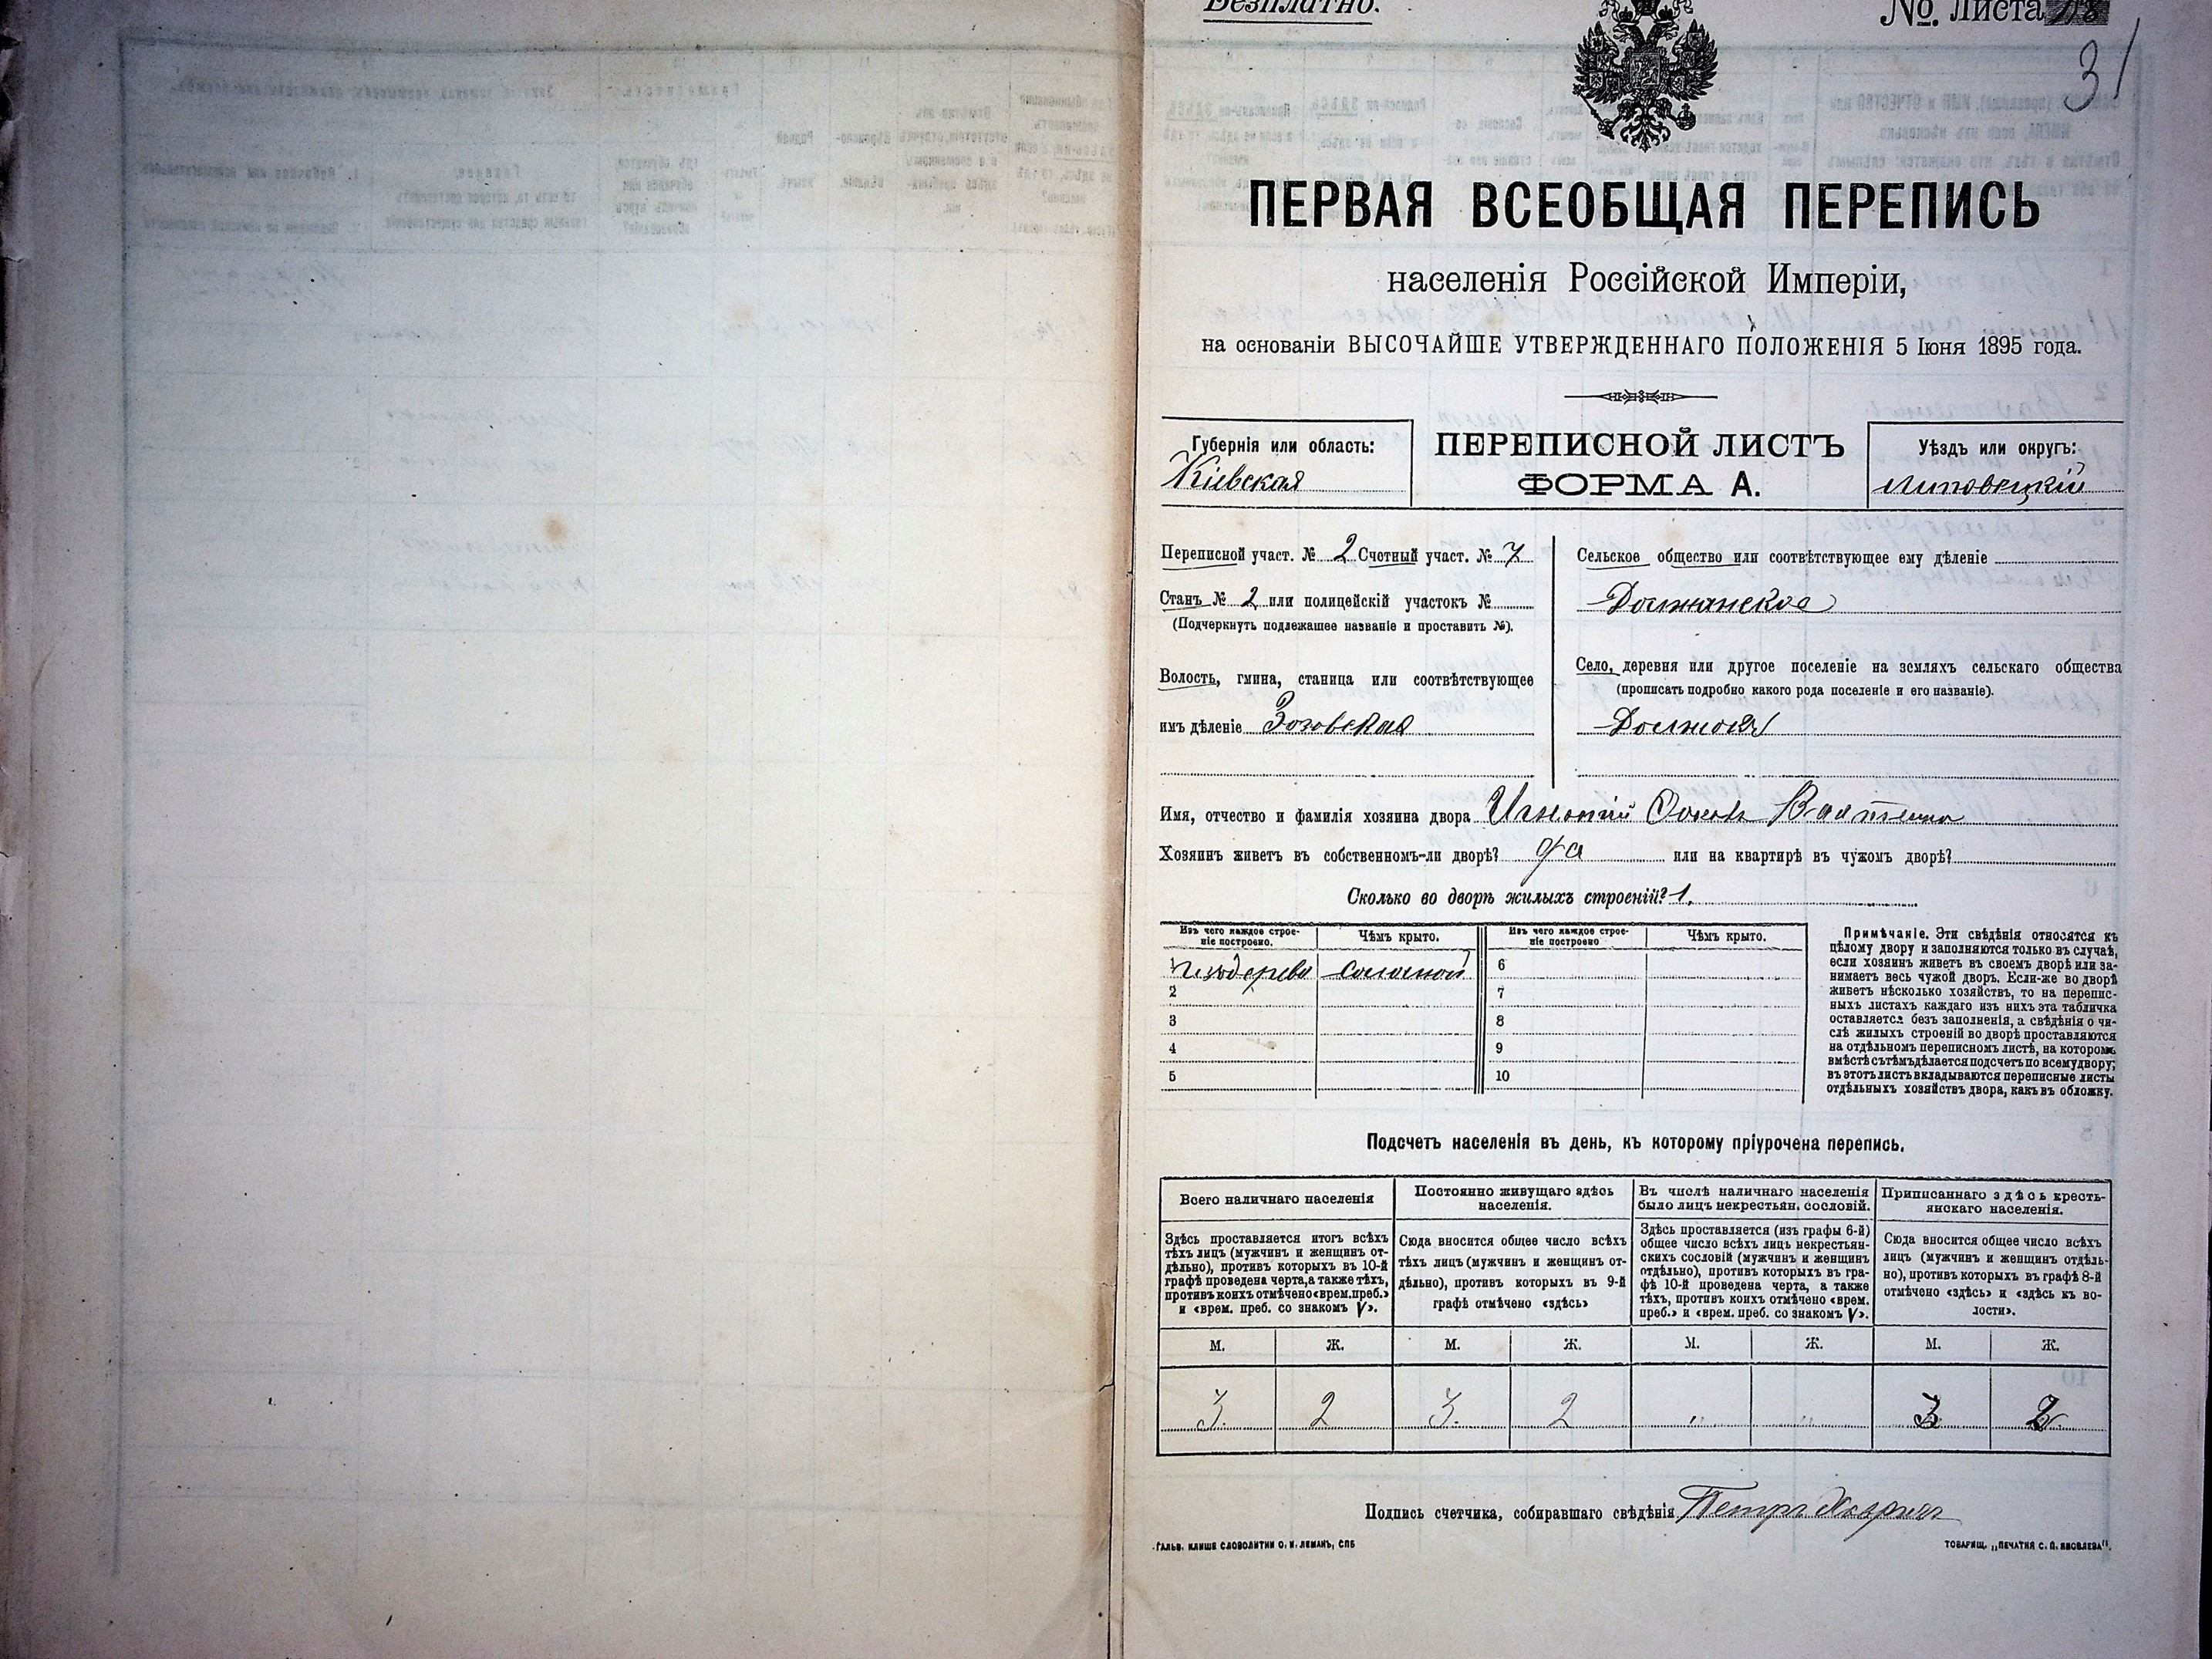 Безплатно.
№ листа
31
ПЕРВАЯ ВСЕОБЩАЯ ПЕРЕПИСЬ
населенія Россійской Имперіи,
на основаніи ВЫСОЧАЙШЕ УТВЕРЖДЕННАГО ПОЛОЖЕНІЯ 5 Іюня 1895 года.
Губернія или область:
Кіевская
ПЕРЕПИСНОЙ ЛИСТЪ
ФОРМА А.
Уѣздъ или округъ:
Липовецкій
Переписной участ. № 2 Счетный участ. № 7
Станъ № 2 или полицейскій участокъ №
(Подчеркнуть подлежащее названіе и проставить №).
Волость, гмина, станица или соотвѣтствующее
имъ дѣленіе Зозовская
Сельское общество или соотвѣтствующее ему дѣленіе
Должанское
Село, деревня или другое поселеніе на земляхъ сельскаго общества
(прописать подробно какого рода поселеніе и его названіе).
Должокъ
Имя, отчество и фамилія хозяина двора Игнатій
Хозяинъ живетъ въ собственномъ-ли дворѣ? да или на квартирѣ въ чужомъ дворѣ?
Сколько во дворѣ жилыхъ строеній? 1.
Изъ чего каждое строе-
ніе построено.
Чѣмъ крыто.
Изъ чего каждое строе-
ніе построено
Чѣмъ крыто.
1 изъ дерева соломой 6
2 7
3 8
4 9
5 10
Примѣчаніе. Эти свѣдѣнія относятся къ
цѣлому двору и заполняются только въ случаѣ,
если хозяинъ живетъ въ своемъ дворѣ или за-
нимаетъ весь чужой дворъ. Если-же во дворѣ
живетъ нѣсколько хозяйствъ, то на перепис-
ныхъ листахъ каждаго изъ нихъ эта табличка
оставляется безъ заполненія, а свѣдѣнія о чи-
слѣ жилыхъ строеній во дворѣ проставляются
на отдѣльномъ переписномъ листѣ, на которомъ
вмѣстѣ съ тѣмъ дѣлается подсчетъ по всему двору;
въ этотъ листъ вкладываются переписные листы
отдѣльныхъ хозяйствъ двора, какъ въ обложку.
Подсчетъ населенія въ день, къ которому пріурочена перепись.
Всего наличнаго населенія
Здѣсь проставляется итогъ всѣхъ
тѣхъ лицъ (мужчинъ и женщинъ от-
дѣльно), противъ которыхъ въ 10-й
графѣ проведена черта, а также тѣхъ,
противъ коихъ отмѣчено «врем. преб.»
и «врем. преб. со знакомъ V».
Постоянно живущаго здѣсь
населенія.
Сюда вносится общее число всѣхъ
тѣхъ лицъ (мужчинъ и женщинъ от-
дѣльно), противъ которыхъ въ 9-й
графѣ отмѣчено «здѣсь»
Въ числѣ наличнаго населенія
было лицъ некрестьян. сословій.
Здѣсь проставляется (изъ графы 6-й)
общее число всѣхъ лицъ некрестьян-
скихъ сословій (мужчинъ и женщинъ
отдѣльно), противъ которыхъ въ гра-
фѣ 10-й проведена черта, а также
тѣхъ, противъ коихъ отмѣчено «врем.
преб.» и «врем. преб. со знакомъ V».
Приписаннаго здѣсь кресть-
янскаго населенія.
Сюда вносится общее число всѣхъ
лицъ (мужчинъ и женщинъ отдѣль-
но), противъ которыхъ въ графѣ 8-й
отмѣчено «здѣсь» и «здѣсь къ во-
лости».
М. Ж. М. Ж. М. Ж. М. Ж.
3. 2 3. 2 „ „ 3 2
Подпись счетчика, собиравшаго свѣдѣнія Петръ
ГАЛЬВ. КЛИШЕ СЛОВОЛИТНИ О. И. ЛЕМАНЪ, СПБ
ТОВАРИЩ. „ПЕЧАТНЯ С. П. ЯКОВЛЕВА".